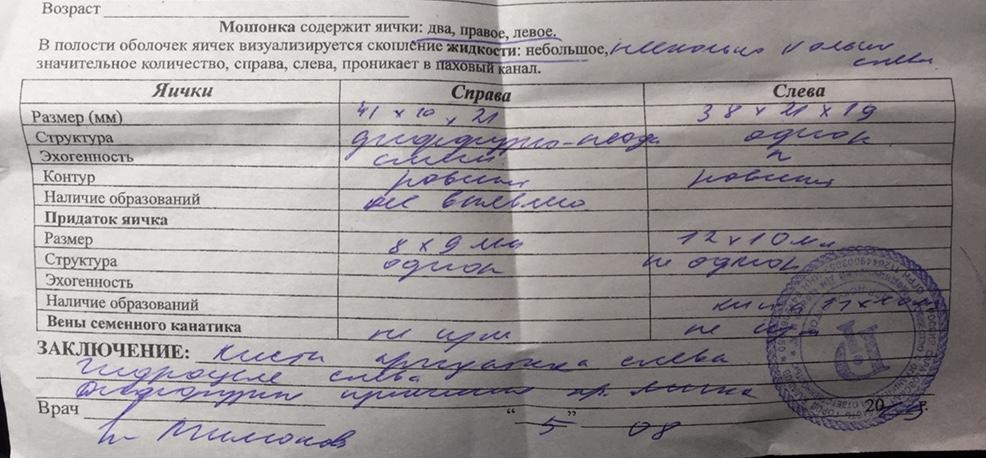 Возраст
Мошонка содержит яички: два, правое, левое.
В полости оболочек яичек визуализируется скопление жидкости: небольшое, несколько больше
значительное количество, справа, слева, проникает в паховый канал. слева
Яички Справа Слева
Размер (мм) 41 x 20 x 21 38 x 21 x 19
Структура диффузно-неод. однон
Эхогенность
Контур ровный ровный
Наличие образований не выявлено
Придаток яичка
Размер 8 x 9 мм 12 x 10 мм
Структура однон не однон
Эхогенность
Наличие образований киста
Вены семенного канатика не изм не изм
ЗАКЛЮЧЕНИЕ: Киста придатка слева
Гидроцеле слева
пр. яичка
Врач “ 5 ” 08 20 г.